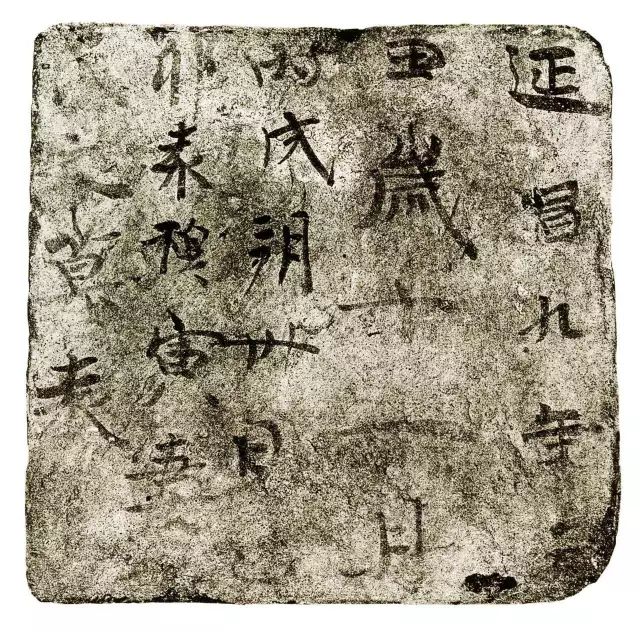 延昌九年己
丑歲十一月
丙戌朔卅日乙
卯寅妻
之墓表